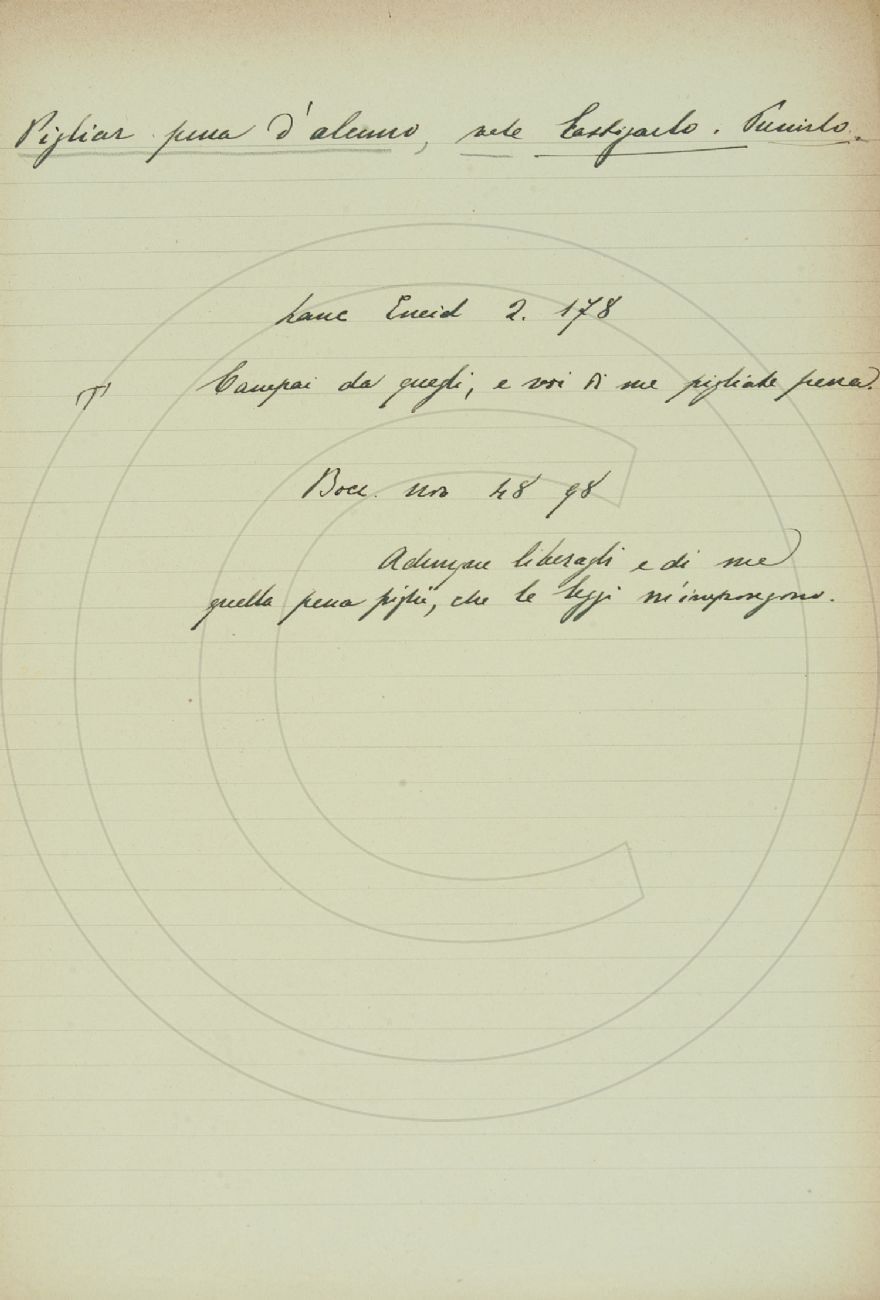 Pigliar pena d'alcuno, vale Castigarlo. Punirlo.
Eneid 2. 178
Campai da quegli, e voi di me pigliate pena.
T
Bocc. nov 48 98
Adunque liberagli e di me
quella pena piglia, che le leggi m'impongono.